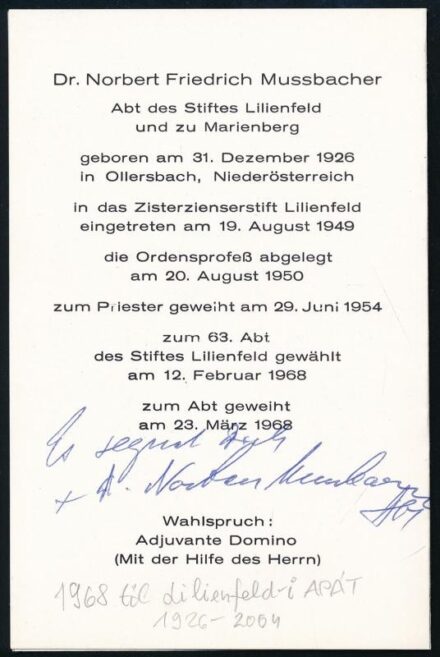 Dr. Norbert Friedrich Mussbacher
Abt des Stiftes Lilienfeld
und zu Marienberg
geboren am 31. Dezember 1926
in Ollersbach, Niederösterreich
in das Zisterzienserstift Lilienfeld
eingetreten am 19. August 1949
die Ordensprofeß abgelegt
am 20. August 1950
zum Priester geweiht am 29. Juni 1954
zum 63. Abt
des Stiftes Lilienfeld gewählt
am 12. Februar 1968
zum Abt geweiht
am 23. März 1968
Es segnet Dich
+ Dr. Norbert Mussbacher
Abt
Wahlspruch:
Adjuvante Domino
(Mit der Hilfe des Herrn)
1968 tól Lilienfeld-i APÁT
1926-2004